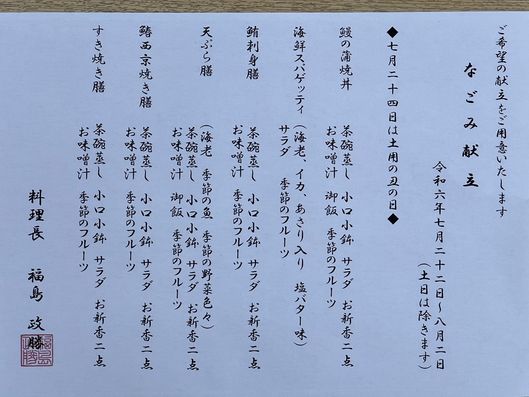 ご希望の献立をご用意いたします
なごみ献立
令和六年七月二十二日〜八月二日
(土日は除きます)
◆七月二十四日は土用の丑の日◆
鰻の蒲焼丼 茶碗蒸し 小口小鉢 サラダ お新香二点
お味噌汁 季節のフルーツ
海鮮スパゲッティ (海老、イカ、あさり入り 塩バター味)
サラダ 季節のフルーツ
鮪刺身膳 茶碗蒸し 小口小鉢 サラダ お新香二点
お味噌汁 季節のフルーツ
天ぷら膳 (海老 季節の魚 季節の野菜色々)
茶碗蒸し 小口小鉢 サラダ お新香二点
お味噌汁 御飯 季節のフルーツ
鰆西京焼き膳 茶碗蒸し 小口小鉢 サラダ お新香二点
お味噌汁 季節のフルーツ
すき焼き膳 茶碗蒸し 小口小鉢 サラダ お新香二点
お味噌汁 季節のフルーツ
料理長 福島 政勝